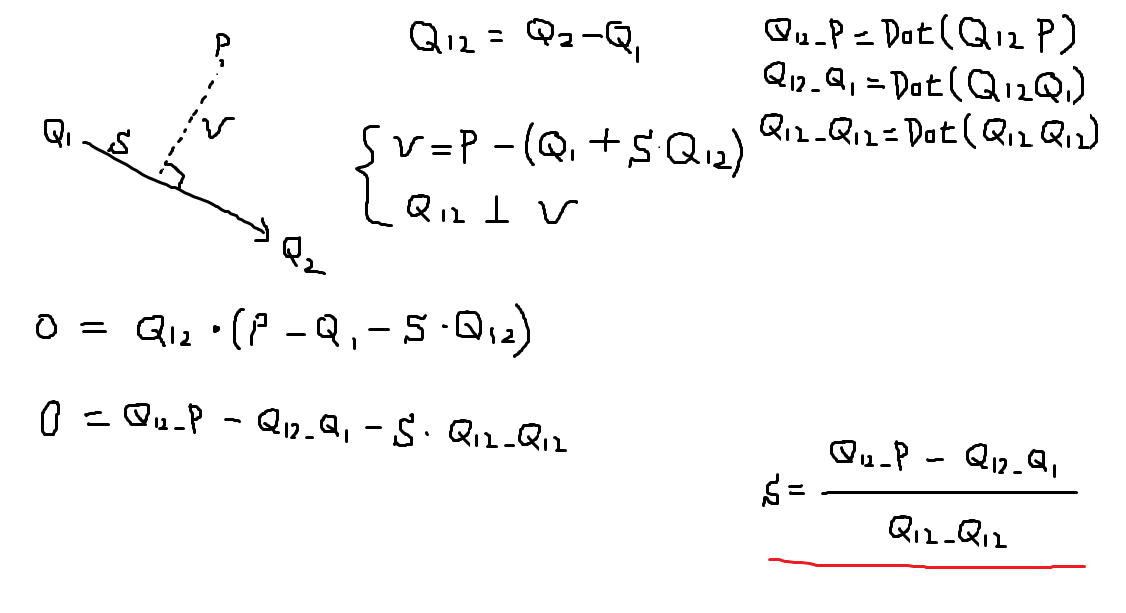 P
Q1
S
V
Q2
Q12 = Q2 - Q1
{ V = P - (Q1 + S·Q12)
Q12 ⊥ V
Q12_P = Dot(Q12 P)
Q12_Q1 = Dot(Q12 Q1)
Q12_Q12 = Dot(Q12 Q12)
0 = Q12 · (P - Q1 - S · Q12)
0 = Q12_P - Q12_Q1 - S · Q12_Q12
S = 
Q12_P - Q12_Q1
Q12_Q12